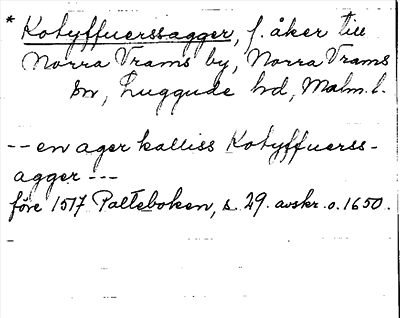 * Kotyffuerssagger, f. åker till
Norra Vrams by, Norra Vrams
sn, Luggude hd, Malm. l.
-- en ager kalliss Kotyffuerss-
agger ---
före 1517 Palteboken, s. 29. avskr. o. 1650.